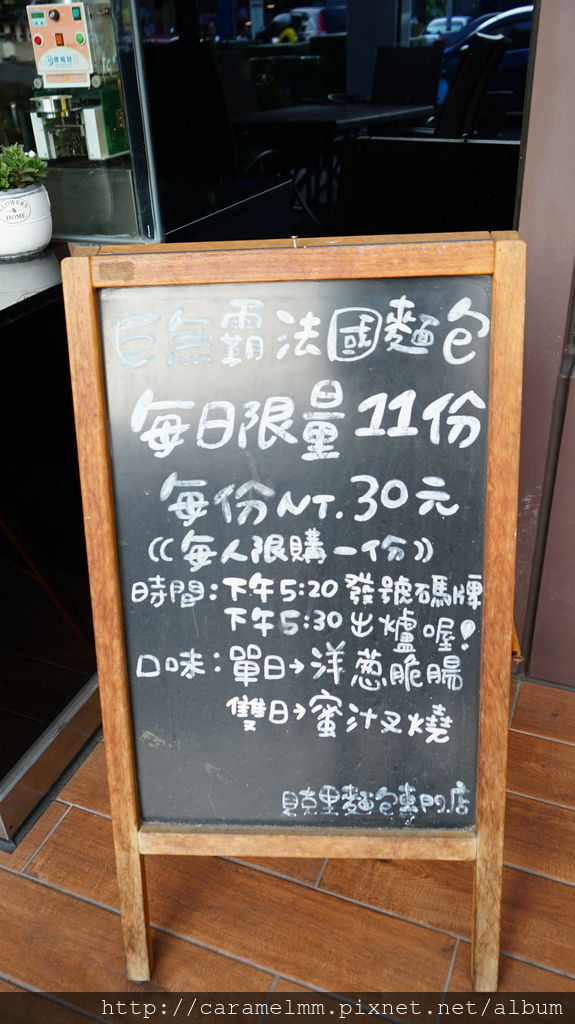 巨無霸法國麵包
每日限量11份
每份NT.30元
((每人限購一份))
時間:下午5:20發號碼牌
下午5:30出爐喔!
口味:單日→洋蔥脆腸
雙日→蜜汁叉燒
貝克里麵包專門店
FLOWERS & HOME
http://caramelmm.pixnet.net/album